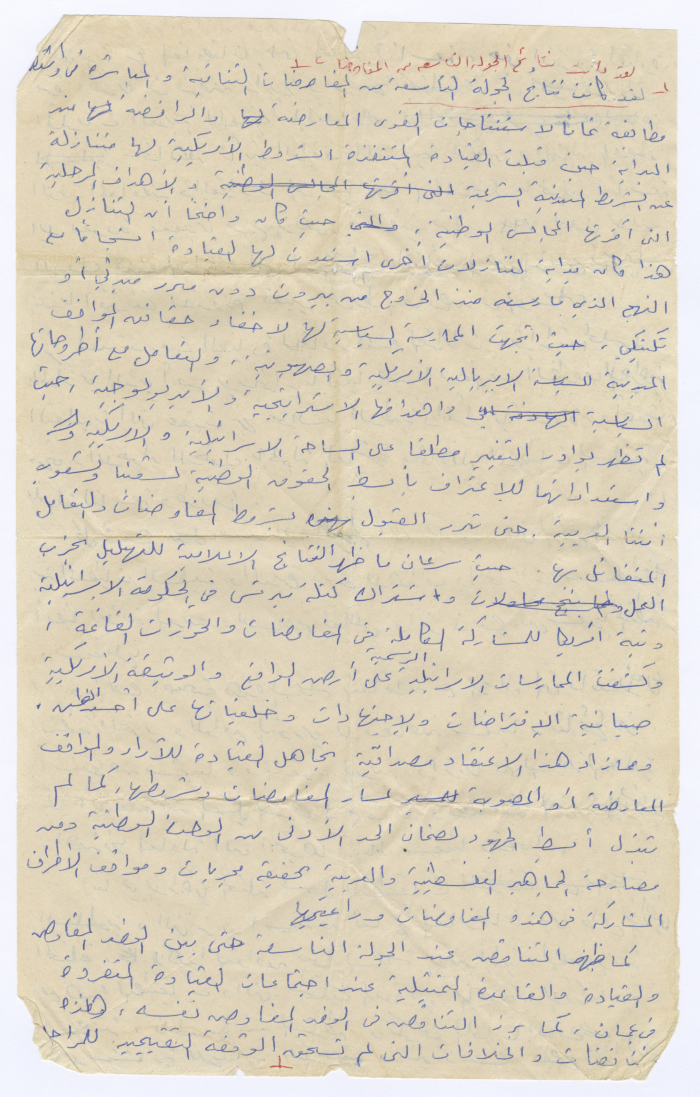 لقد كانت نتائج الجولة التاسعة من المفاوضات
لقد كانت نتائج الجولة التاسعة من المفاوضات الثنائية و المباشرة في واشنطن
مطابقة تماماً لاستنتاجات القوى المعارضة لها والرافضة لها منذ
البداية حين قبلت القيادة المتنفذة الشروط الأمريكية لها متنازلة
عن الشروط المبدئية الشرعية التي اقرتها المجالس الوطنية و الأهداف المرحلية
التي أقرتها المجالس الوطنية ، والتي حيث كان واضحاً أن التنازل
هذا كان بداية لتنازلات أخرى استعدت لها القيادة انسجاماً مع
النهج الذي مارسته منذ الخروج من بيروت دون مبرر مبدئي أو
تكتيكي ، حيث اتجهت الممارسة السياسية لها لاخفاء حقائق المواقف
المبدئية للسياسة الامبريالية الأمريكية والصهيونية ، والتعامل مع أطروحاتها
السياسية واهدافها الاستراتيجية والأيديولوجية ، حيث
لم تظهر بوادر التغيير مطلقا على الساحة الاسرائيلية و الأمريكية
واستعداداتهما للاعتراف بأبسط الحقوق الوطنية لشعبنا ولشعوب
أمتنا العربية . حتى تبرر القبول بهذه بشروط المفاوضات والتعامل
المتفائل بها . حيث سرعان ما ظهر النتائج الاعلامية للتهليل لحزب
العمل واشتراك كتلة ميرتس في الحكومة الاسرائيلية
ونية أمريكا للمشاركة الكاملة في المفاوضات والحوارات القائمة ،
وكشفت الممارسات الاسرائيلية الرسمية على أرض الواقع والوثيقة الأمريكية
صبيانية الإفتراضات والإجتهادات وخلفياتها على أحسن الظن .
ومما زاد هذا الاعتقاد مصداقية تجاهل القيادة للآراء والمواقف
المعارضة أو المصوبة لمسار المفاوضات وشروطها ، كما لم
تبذل أبسط الجهود لضمان الحد الأدنى من الوحدة الوطنية ومن
مصارحة الجماهير الفلسطينية والعربية بحقيقة مجريات ومواقف الأطراف
المشاركة في هذه المفاوضات وراعيتيها
كما ظهر التناقض عند الجولة التاسعة حتى بين الوفد المفاوض
والقيادة والقاعدة التمثيلية عند اجتماعات القيادة المتفردة
في عمان ، كما برز التناقض في الوفد المفاوض نفسه ، وهذه
تناقضات والخلافات التي لم تستحق الوقفة التقييمية للمراحل